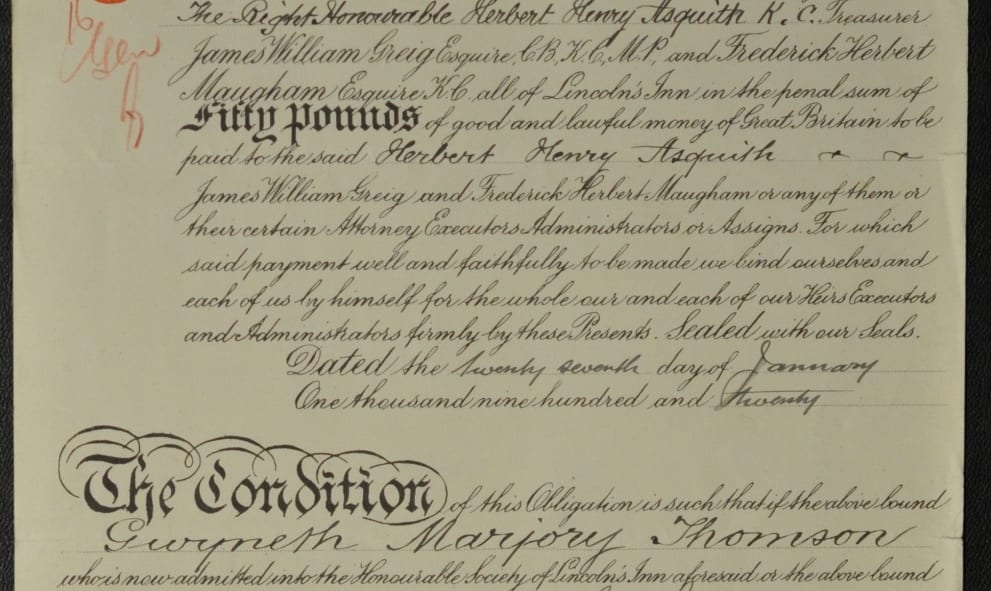 The Right Honourable Herbert Henry Asquith K.C. Treasurer
James William Greig Esquire, C.B, K.C, M.P, and Frederick Herbert
Maugham Esquire K.C. all of Lincoln's Inn in the penal sum of
Fifty Pounds of good and lawful money of Great Britain to be
paid to the said Herbert Henry Asquith ~ ~
James William Greig and Frederick Herbert Maugham or any of them or
their certain Attorney Executors Administrators or Assigns. For which
said payment well and faithfully to be made we bind ourselves and
each of us by himself for the whole our and each of our Heirs Executors
and Administrators firmly by these Presents. Sealed with our Seals.
Dated the twenty seventh day of January
One thousand nine hundred and twenty
The Condition of this Obligation is such that if the above bound
Gwyneth Marjory Thomson
who is now admitted into the Honourable Society of Lincoln's Inn aforesaid or the above bound